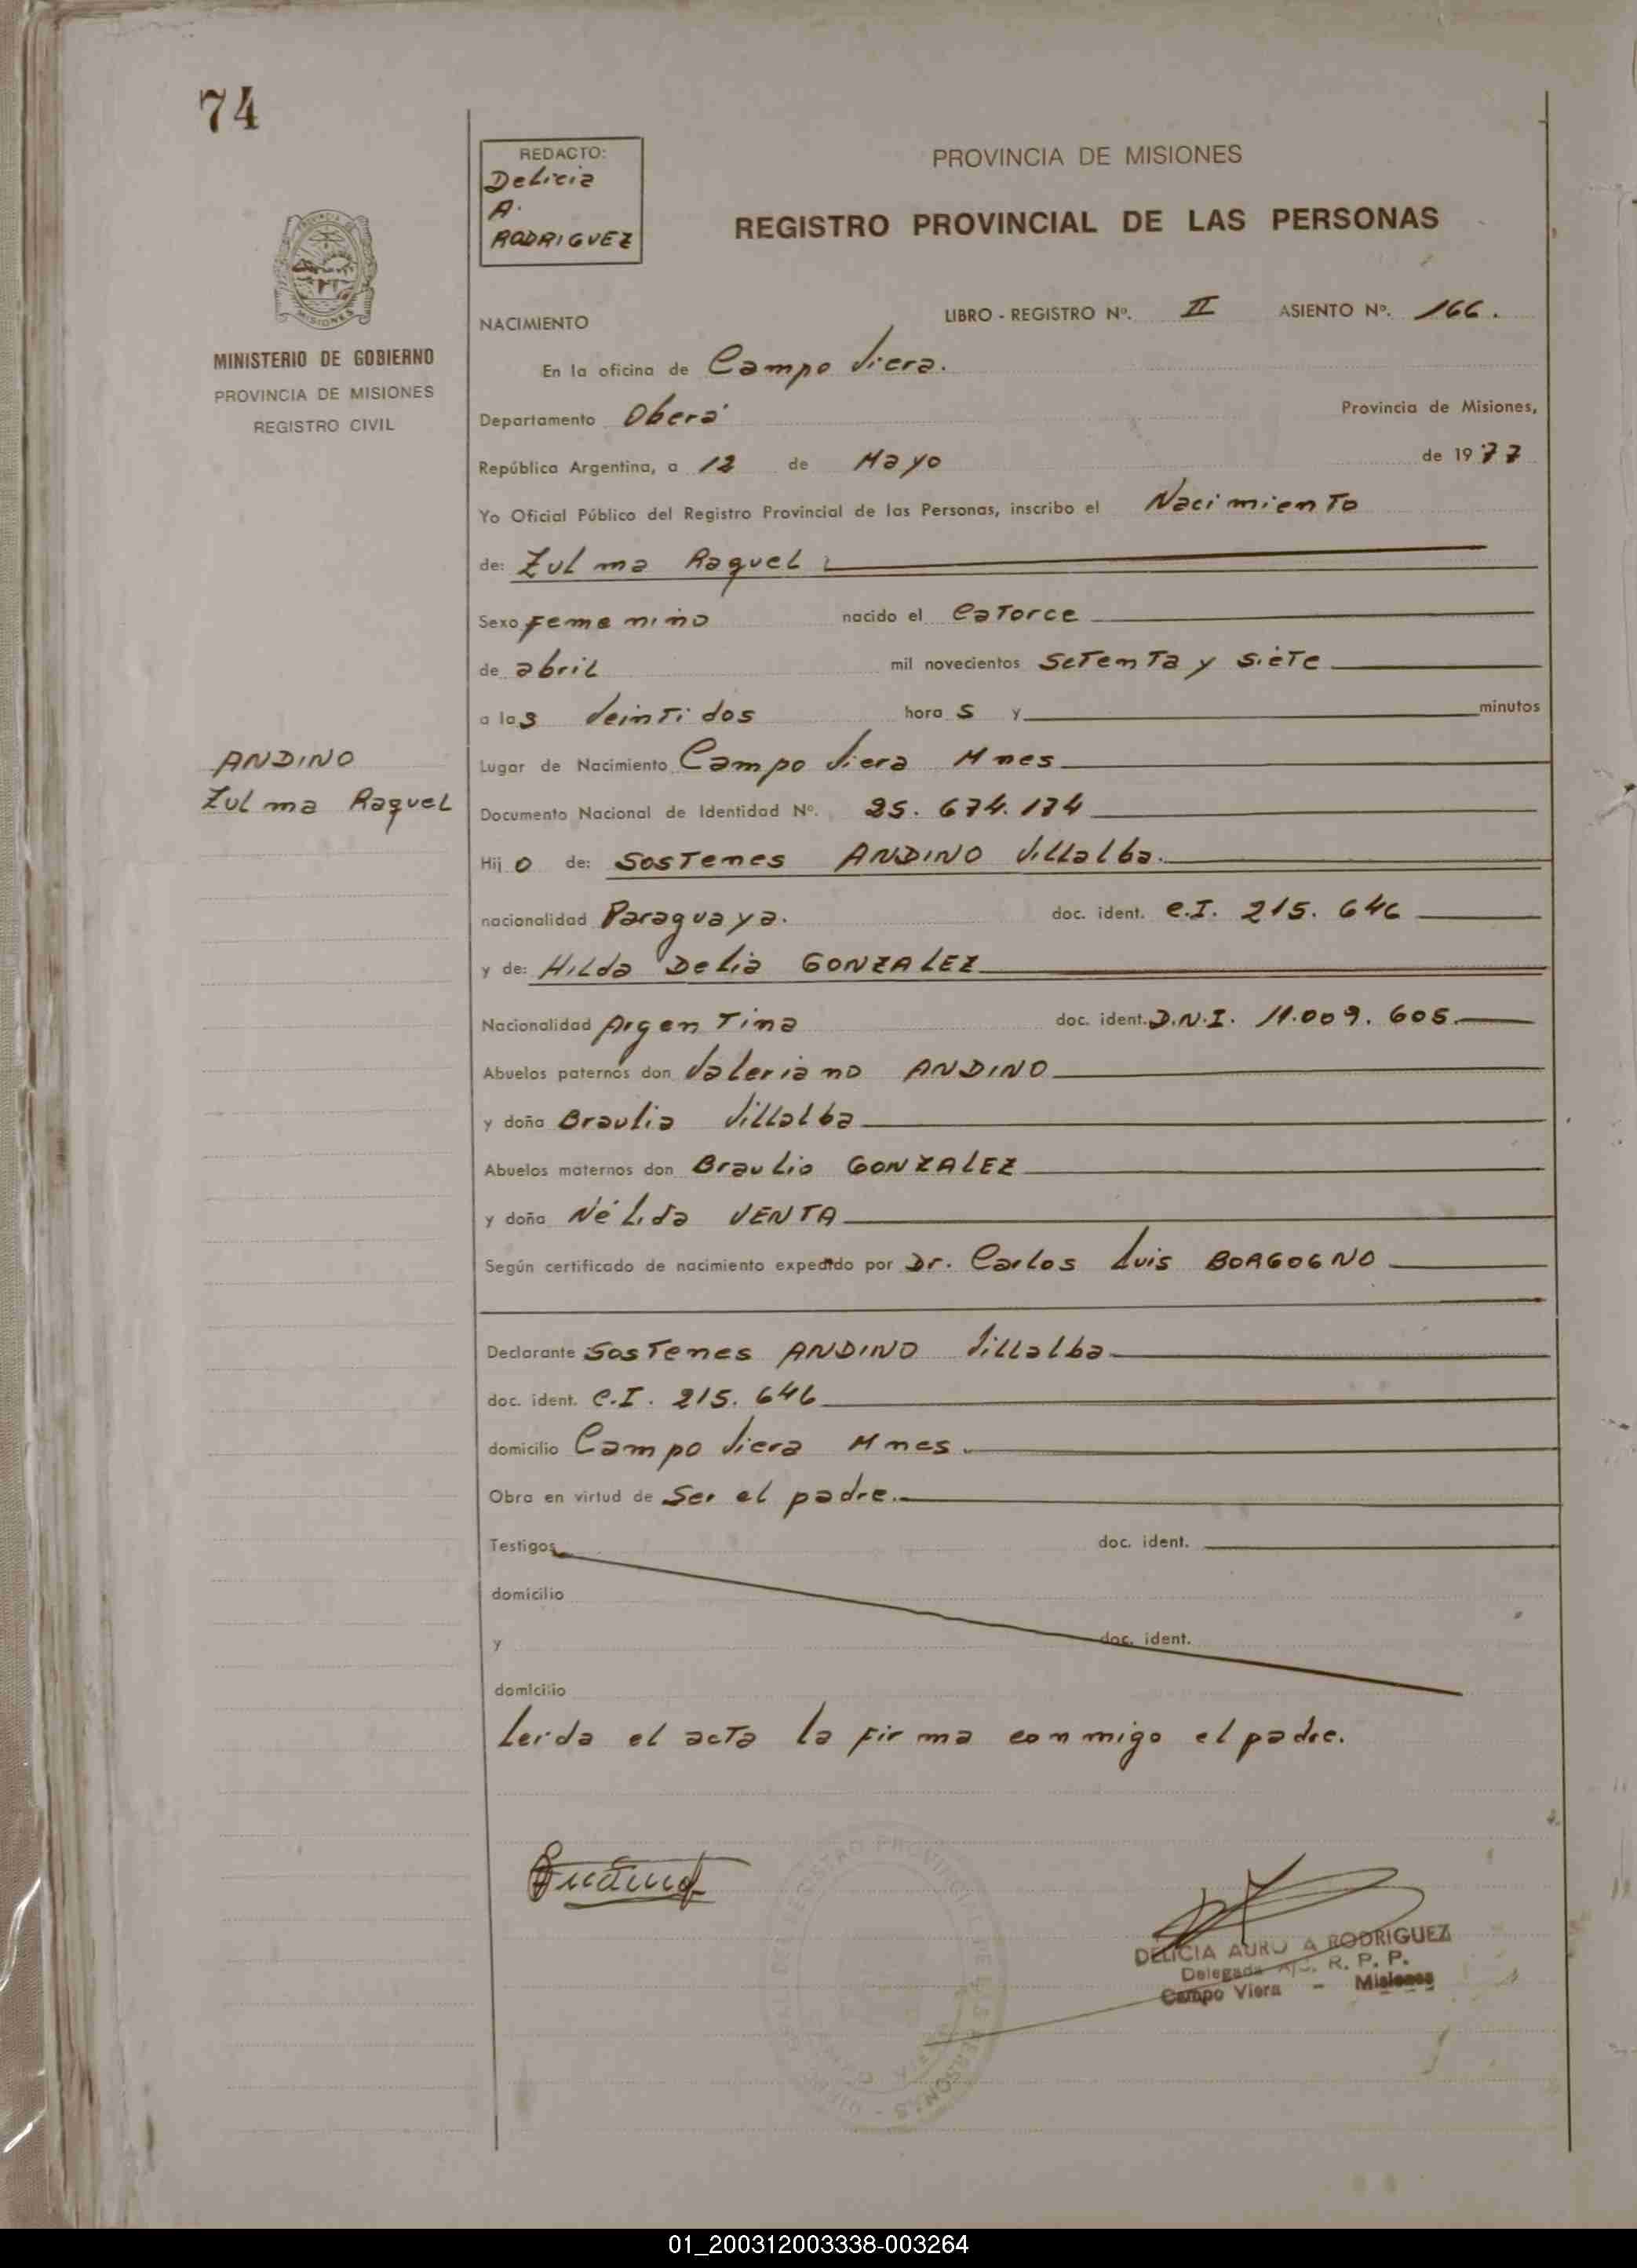 74
REDACTO:
Delicia
A.
RODRIGUEZ
PROVINCIA DE MISIONES
REGISTRO PROVINCIAL DE LAS PERSONAS
MISIONES
MINISTERIO DE GOBIERNO
PROVINCIA DE MISIONES
REGISTRO CIVIL
NACIMIENTO
LIBRO - REGISTRO Nº. II ASIENTO Nº. 166.
En la oficina de Campo Viera.
Departamento Oberá Provincia de Misiones,
República Argentina, a 12 de Mayo de 1977
Yo Oficial Público del Registro Provincial de las Personas, inscribo el Nacimiento
de: Zulma Raquel
Sexo Femenino nacido el Catorce
de abril mil novecientos Setenta y Siete
a las Veintidos horas y minutos
ANDINO
Zulma Raquel
Lugar de Nacimiento Campo Viera Mnes
Documento Nacional de Identidad Nº. 25.674.174
Hijo de: Sostenes ANDINO Villalba.
nacionalidad Paraguaya. doc. ident. C.I. 215.646
y de: Hilda Delia GONZALEZ
Nacionalidad Argentina doc. ident. D.N.I. 11.009.605.
Abuelos paternos don Valeriano ANDINO
y doña Braulia Villalba
Abuelos maternos don Braulio GONZALEZ
y doña Nélida VENTA
Según certificado de nacimiento expedido por Dr. Carlos Luis BORGOGNO
Declarante Sostenes ANDINO Villalba
doc. ident. C.I. 215.646
domicilio Campo Viera Mnes.
Obra en virtud de Ser el padre.
Testigos doc. ident.
domicilio
y doc. ident.
domicilio
Leida el acta la firma conmigo el padre.
DELICIA A RODRIGUEZ
Delegada R. P. P.
Campo Viera - Misiones
01_200312003338-003264